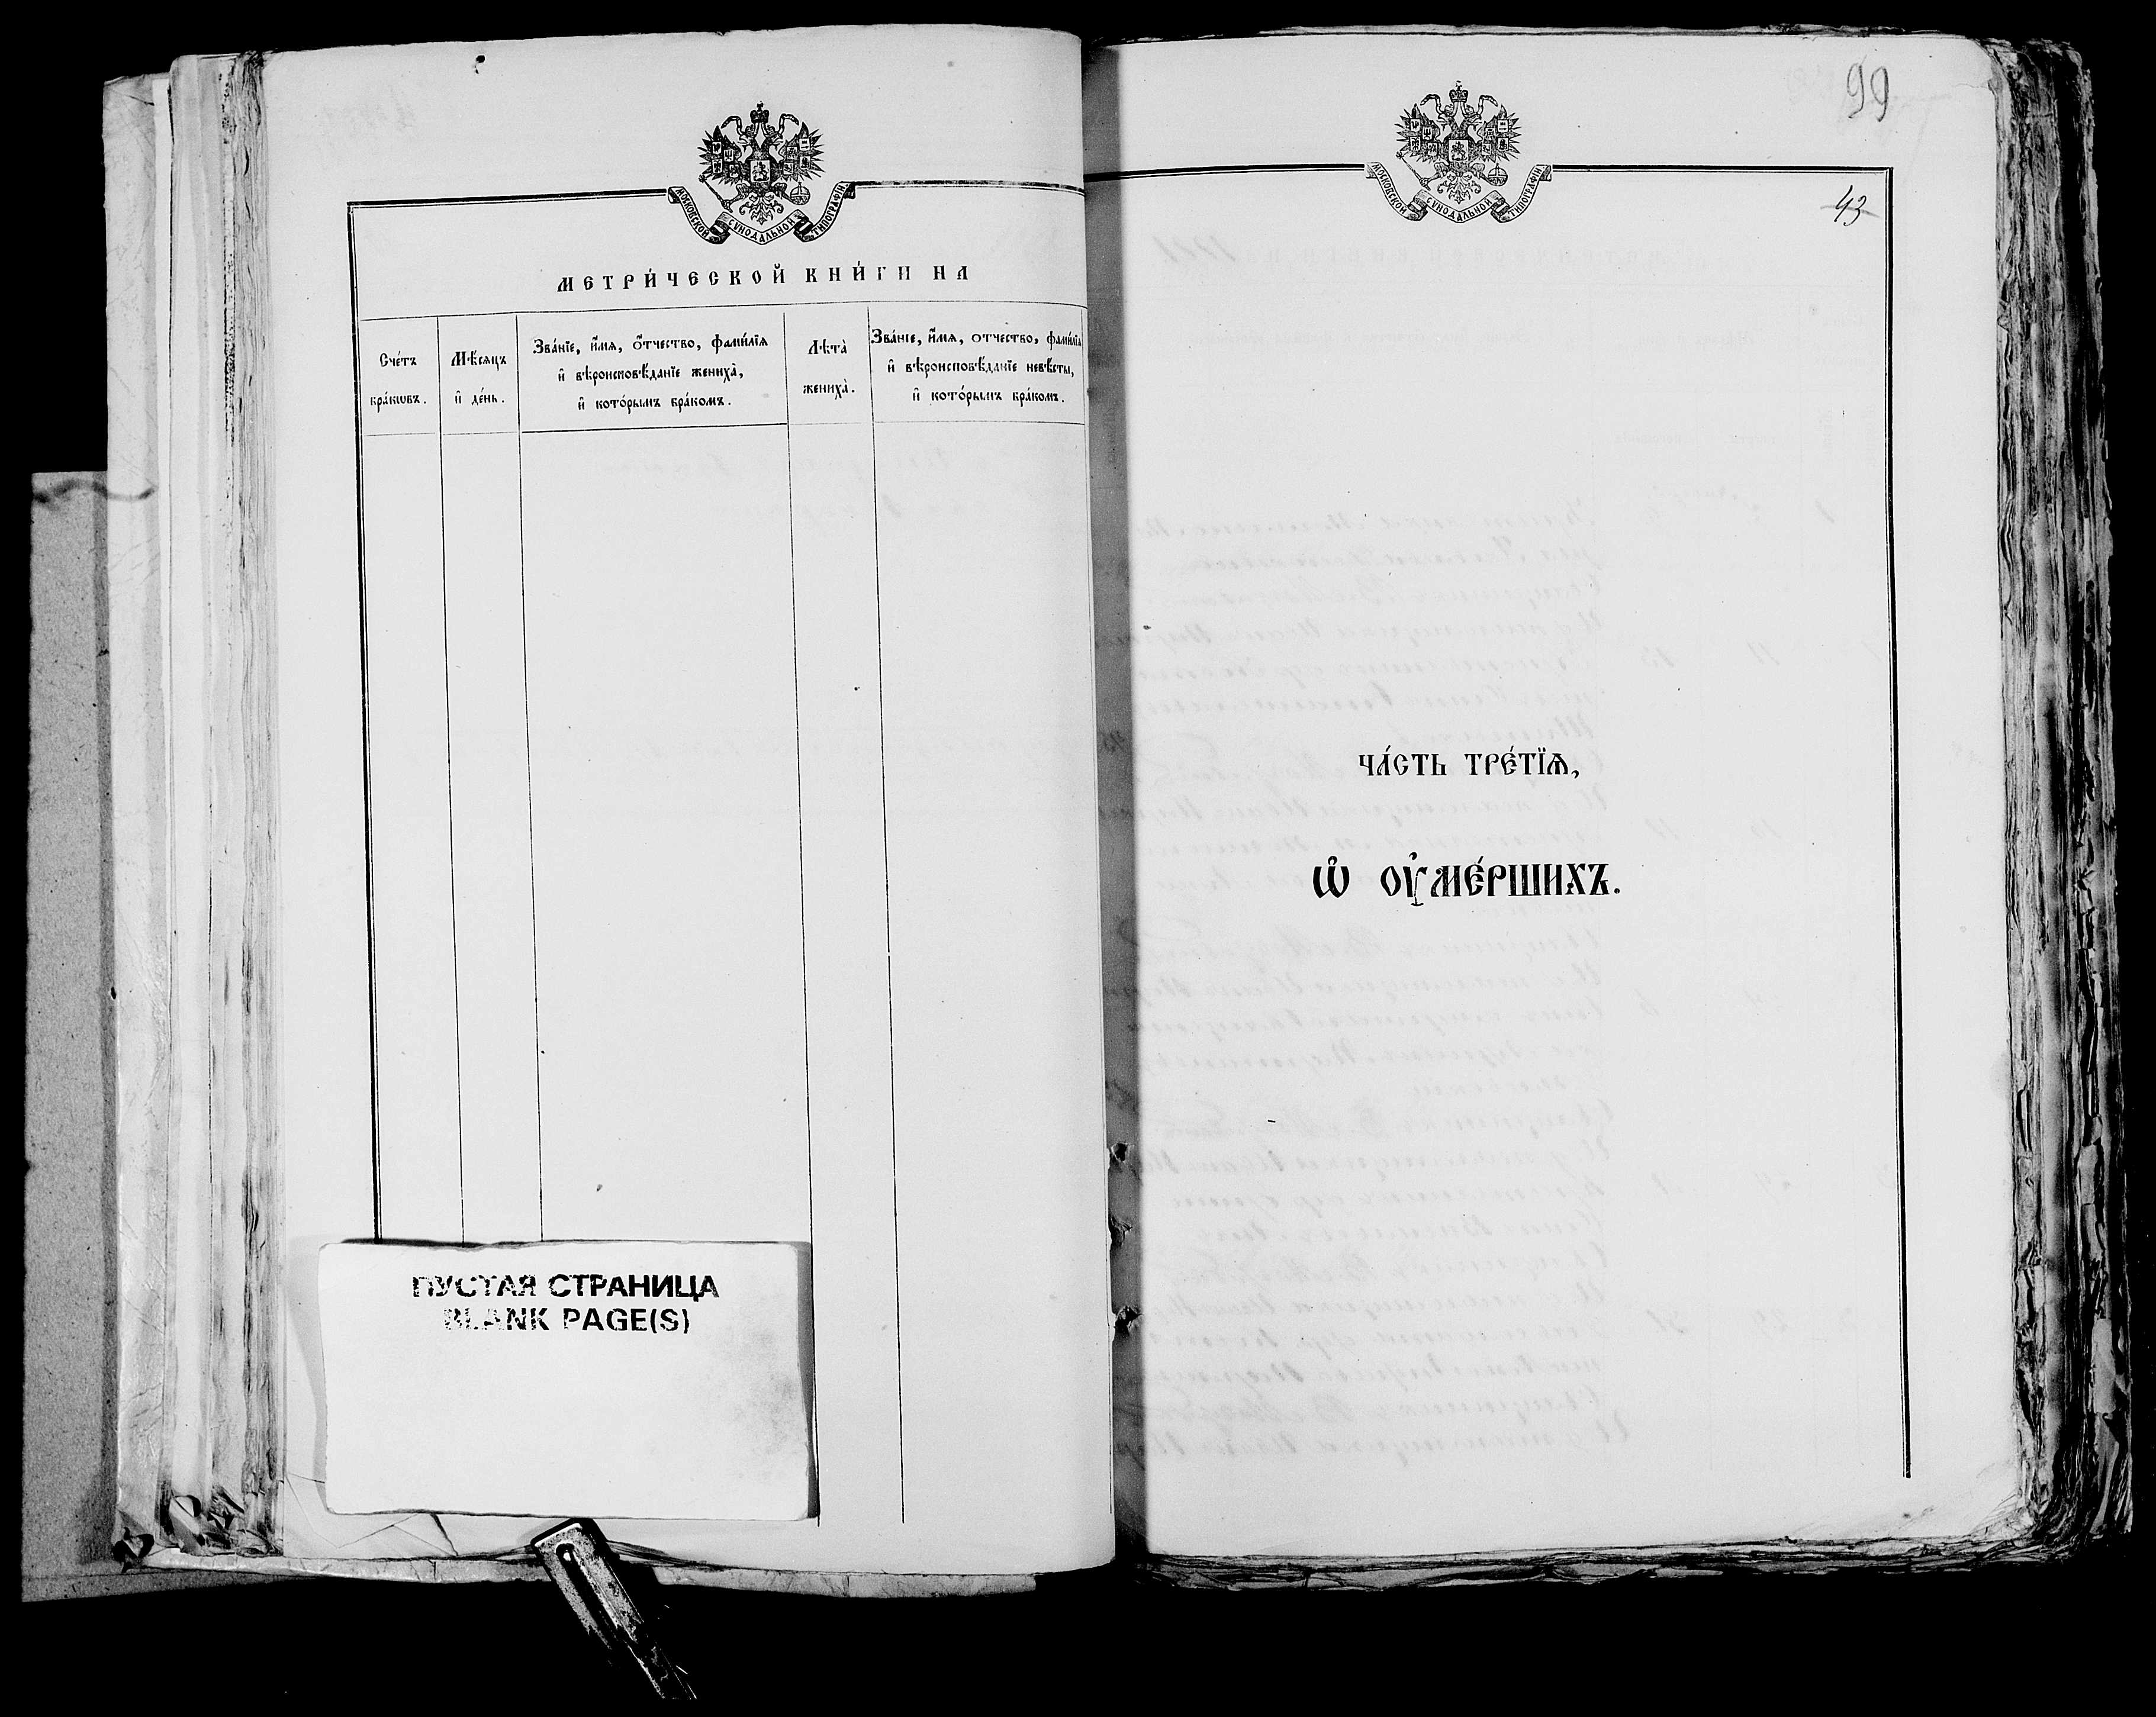 МОСКОВСКОЙ СѴНОДАЛЬНОЙ ТИПОГРАФІИ
МЕТРИ́ЧЕСКОЙ КНИ́ГИ НА
Сче́тъ
бра́кѡвъ.
Мѣ́сяцъ
и҆ де́нь.
Зва́нїе, и҆́мя, ѻ҆́тчество, фами́лїя
и҆ вѣроисповѣ́данїе жениха̀,
и҆ кото́рымъ бра́комъ.
Лѣта̀
жениха̀.
Зва́нїе, и҆́мя, ѻ҆́тчество, фами́лїя
и҆ вѣроисповѣ́данїе невѣ́сты,
и҆ кото́рымъ бра́комъ.
ПУСТАЯ СТРАНИЦА
BLANK PAGE(S)
99
МОСКОВСКОЙ СѴНОДАЛЬНОЙ ТИПОГРАФІИ
43
ЧА́СТЬ ТРЕ́ТЇѦ,
Ѡ҆ ОУ҆МЕ́РШИХЪ.